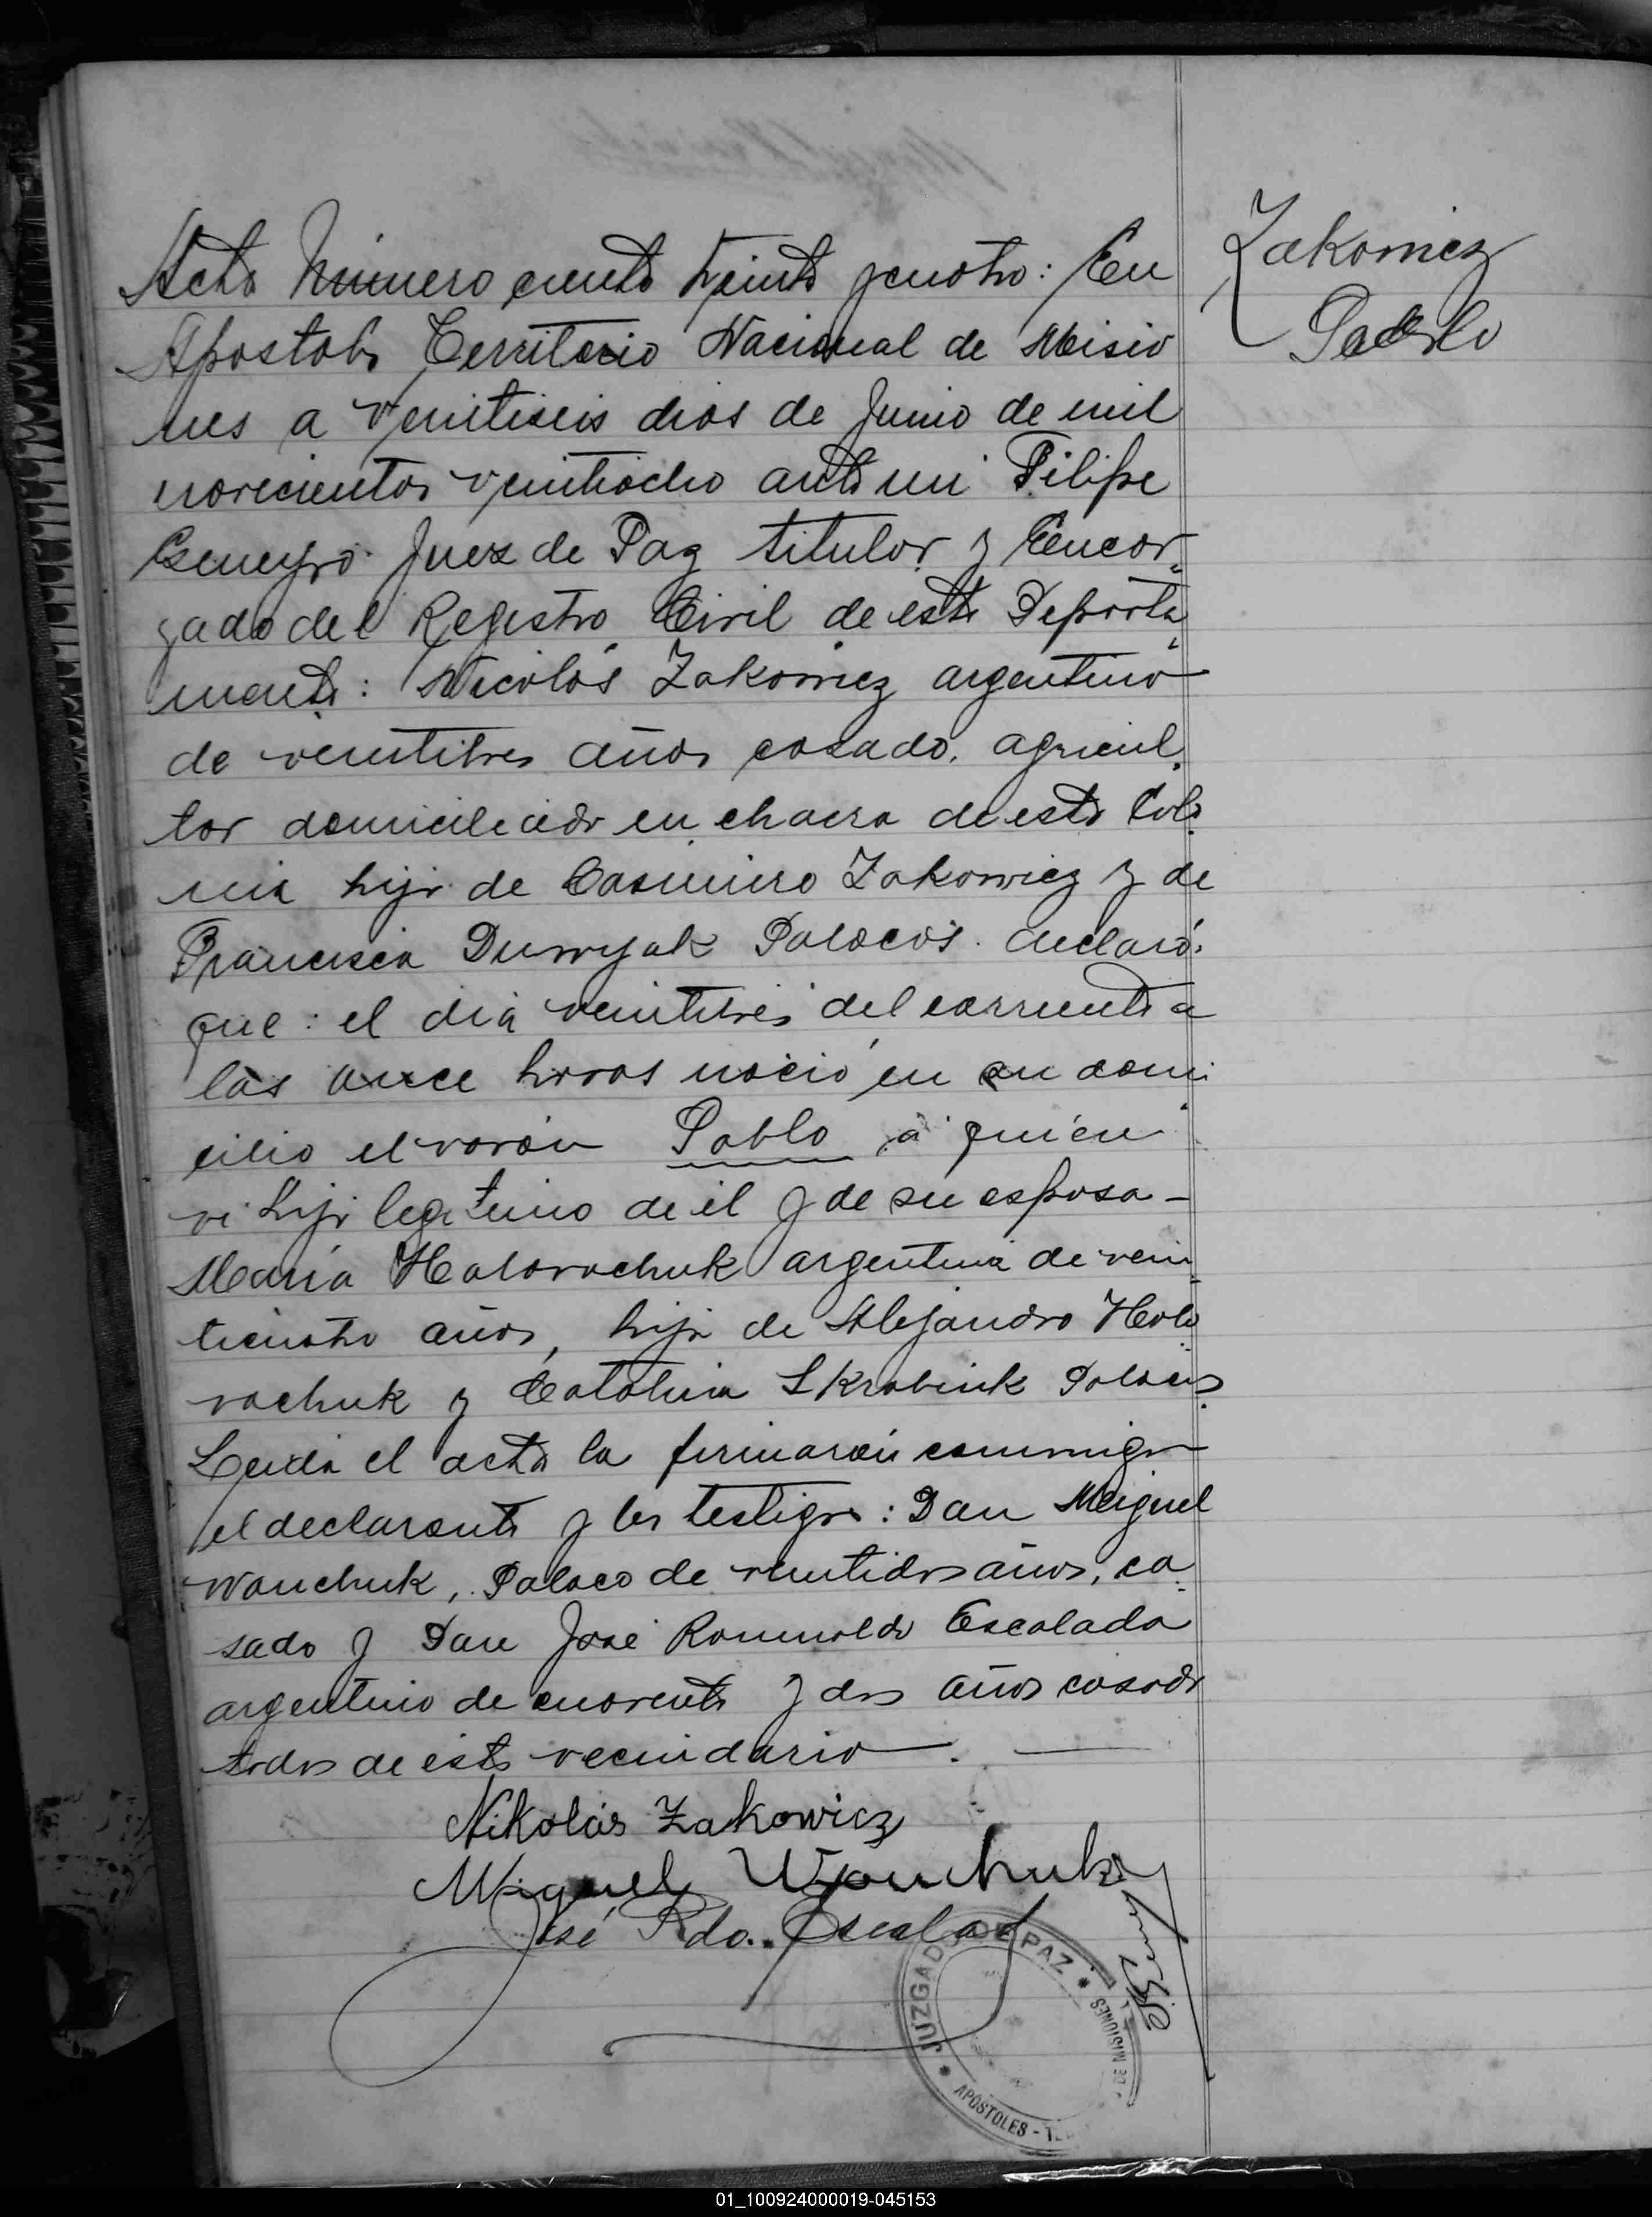 Zakowicz
Pablo
Acta Número ciento treinta y cuatro: En
Apostoles Territorio Nacional de Misio
nes a veintiseis dias de Junio de mil
novecientos veintiocho ante mi Filipe
Juez de Paz titular y Encar-
gado del Registro Civil de este Departa
mento: Nicolás Zakowicz argentino
de veintitres años casado, agricul
tor domiciliado en chacra de esta Colo
nia hijo de Casimiro Zakowicz y de
Francisca Duwyak Polacos. declaró:
que: el dia veintitrés del corriente a
las once horas nació en su domi
cilio el varón Pablo a quién
vi hijo legitimo de él y de su esposa -
María Holovachuk argentina de vein
ticuatro años, hija de Alejandro Holo
vachuk y Catalina Skrabiuk Polacos
Leida el acta la firmarón conmigo
el declarante y los testigos: Don Miguel
Wonchuk, Polaco de veintidos años, ca
sado y Don José Romualdo Escalada
argentino de cuarenta y dos años casado
todos de este vecindario.
Nikolás Zakowicz
Miguel Wonchuk
José Rdo. Escalada
JUZGADO DE PAZ * MISIONES
* APOSTOLES -
01_100924000019-045153